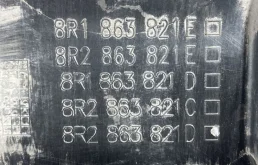 8R1 863 821 E
8R2 863 821 E
8R1 863 821 D
8R2 863 821 C
8R2 863 821 D